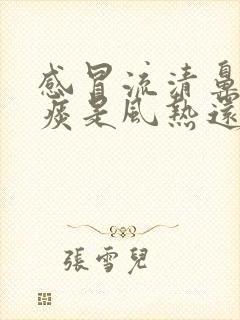 感冒流清鼻
痰是風熱還
張雪兒